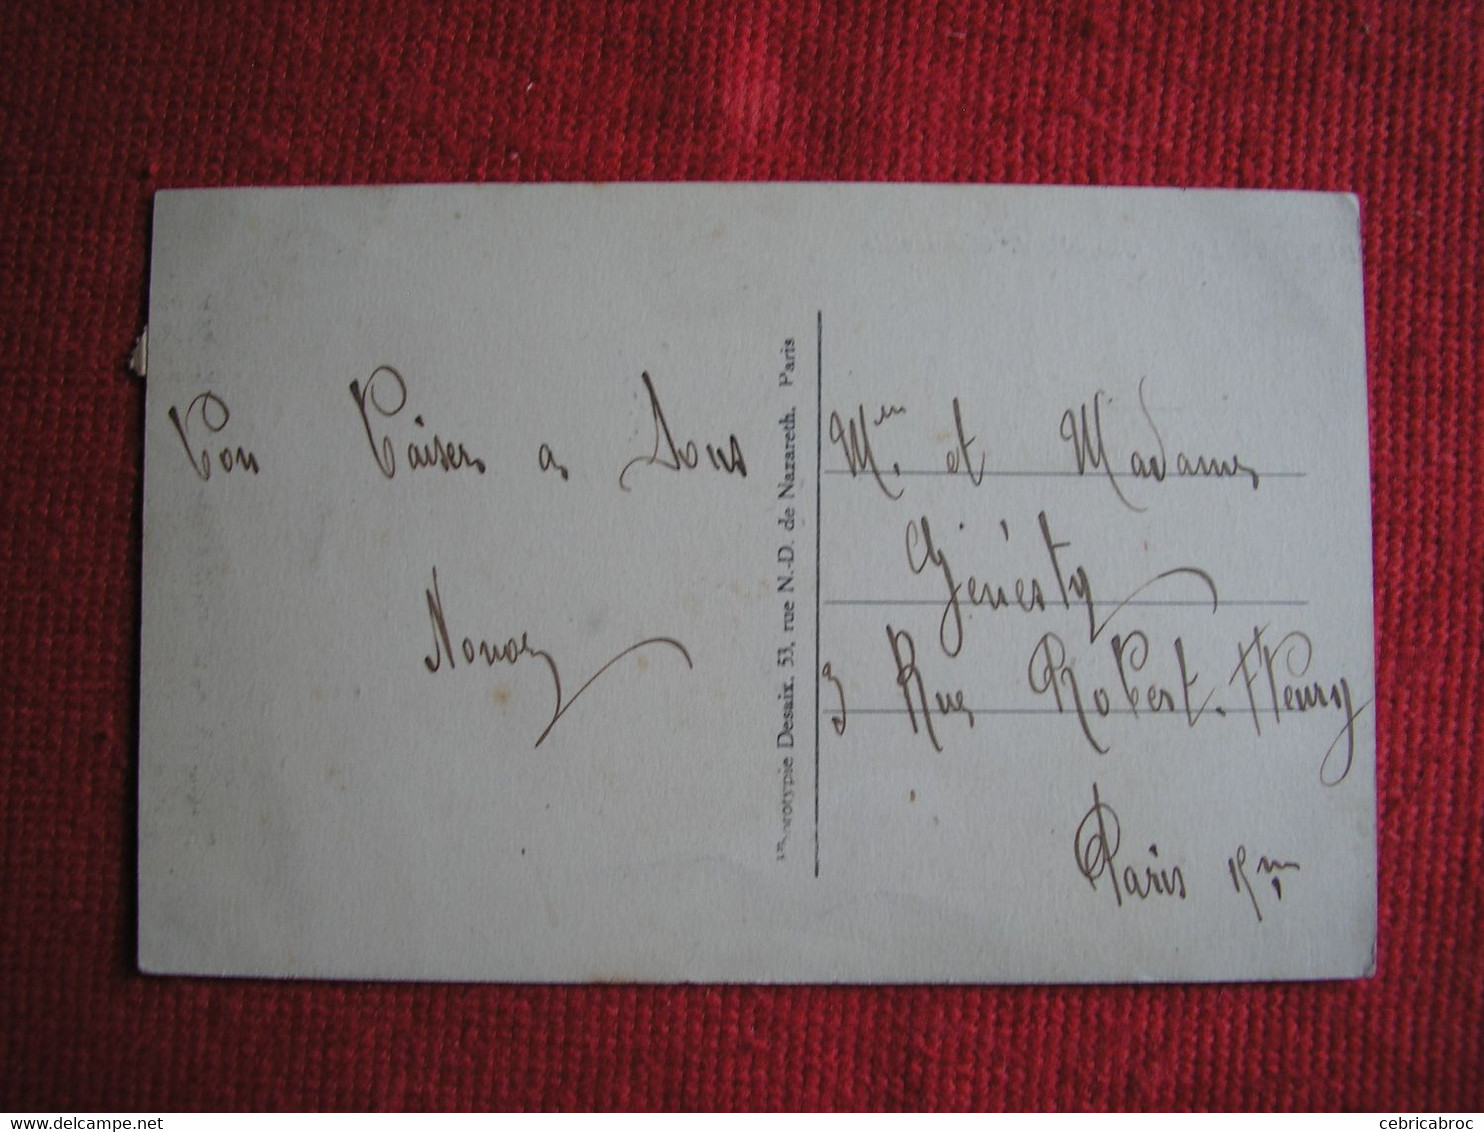 Bon Baisers a Tous
Nonoz
Phototypie Desaix. 53, rue N.-D. de Nazareth. Paris
Mr. et Madame
Génésty
3 Rue Robert. Fleury
Paris
delcampe.com
cebricabroc